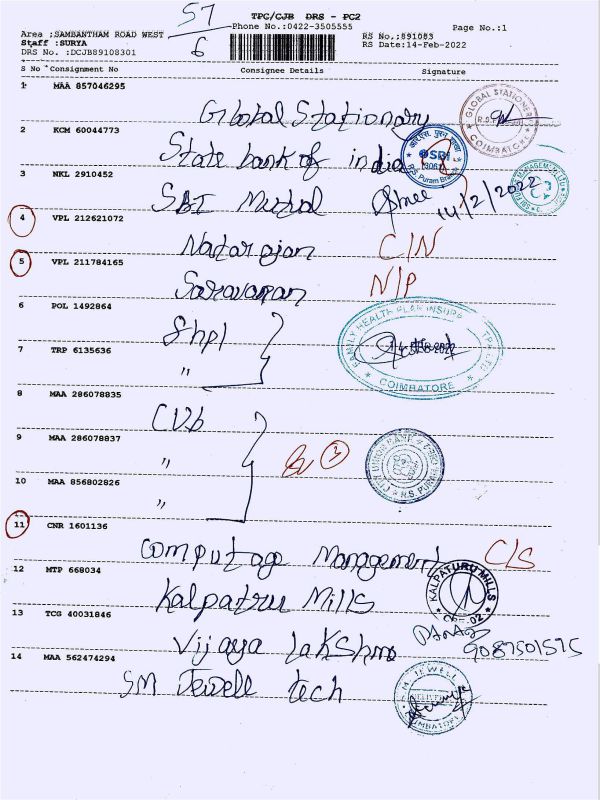 57
6
TPC/CJB DRS - PC2
Phone No.:0422-3505555
Page No.:1
Area :SAMBANTHAM ROAD WEST
Staff :SURYA
DRS No. :DCJB89108301
RS No.:891083
RS Date:14-Feb-2022
S No Consignment No Consignee Details Signature
1 MAA 857046295
Global Stationary
GLOBAL STATIONERY
COIMBATORE
2 KCM 60044773
State bank of india
SBI
R.S. Puram Branch
3 NKL 2910452
SBI Mutual
14/2/2022
4 VPL 212621072
Natarajan C/N
5 VPL 211784165
Saravanan N/P
6 POL 1492864
Shpl
FAMILY HEALTH PLAN INSURANCE TPA LTD
COIMBATORE
7 TRP 6135636
"
8 MAA 286078835
CUb
9 MAA 286078837
"
3
CITY UNION BANK
R.S. PURAM
10 MAA 856802826
"
11 CNR 1601136
Computage Management C/S
12 MTP 668034
Kalpatru Mills
KALPATURU MILLS
CBE.02
13 TCG 40031846
Vijaya lakshmi
9087501575
14 MAA 562474294
SM Jewell tech